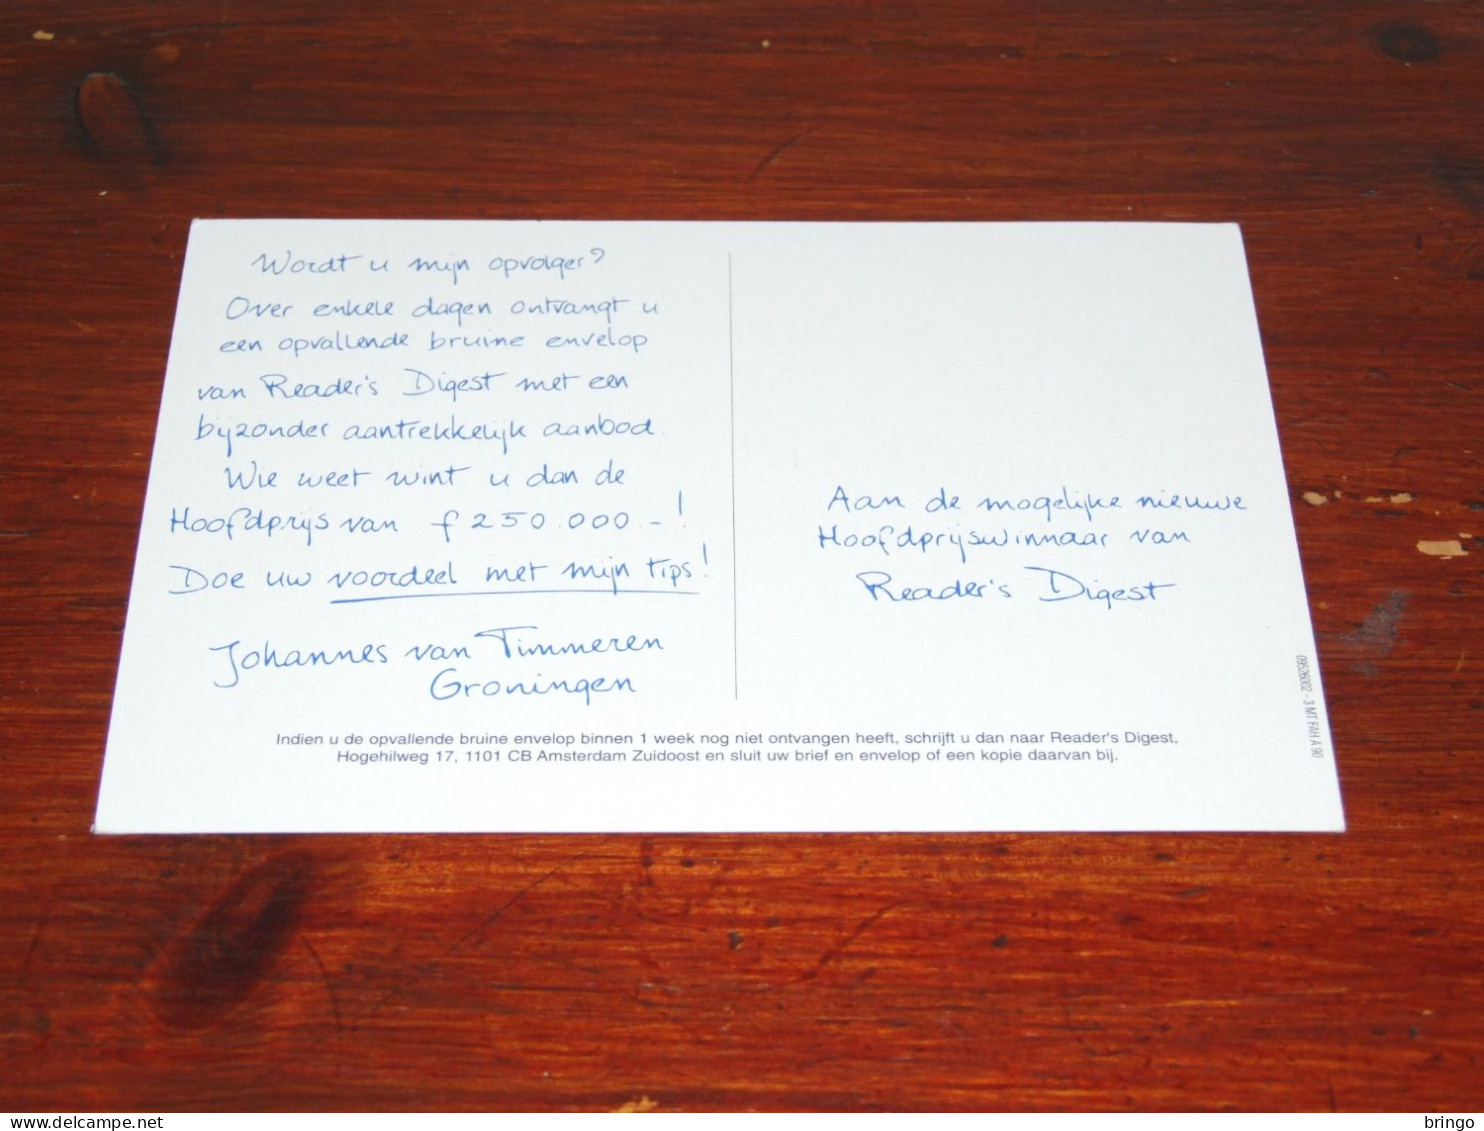 Wordt u mijn opvolger?
Over enkele dagen ontvangt u
een opvallende bruine envelop
van Reader's Digest met een
bijzonder aantrekkelijk aanbod.
Wie weet wint u dan de
Hoofdprijs van f 250.000.-!
Doe uw voordeel met mijn tips!
Johannes van Timmeren
Groningen
Aan de mogelijke nieuwe
Hoofdprijswinnaar van
Reader's Digest
Indien u de opvallende bruine envelop binnen 1 week nog niet ontvangen heeft, schrijft u dan naar Reader's Digest,
Hogehilweg 17, 1101 CB Amsterdam Zuidoost en sluit uw brief en envelop of een kopie daarvan bij.
09526002 - 3 MT FAH A 90
www.delcampe.net
bringo